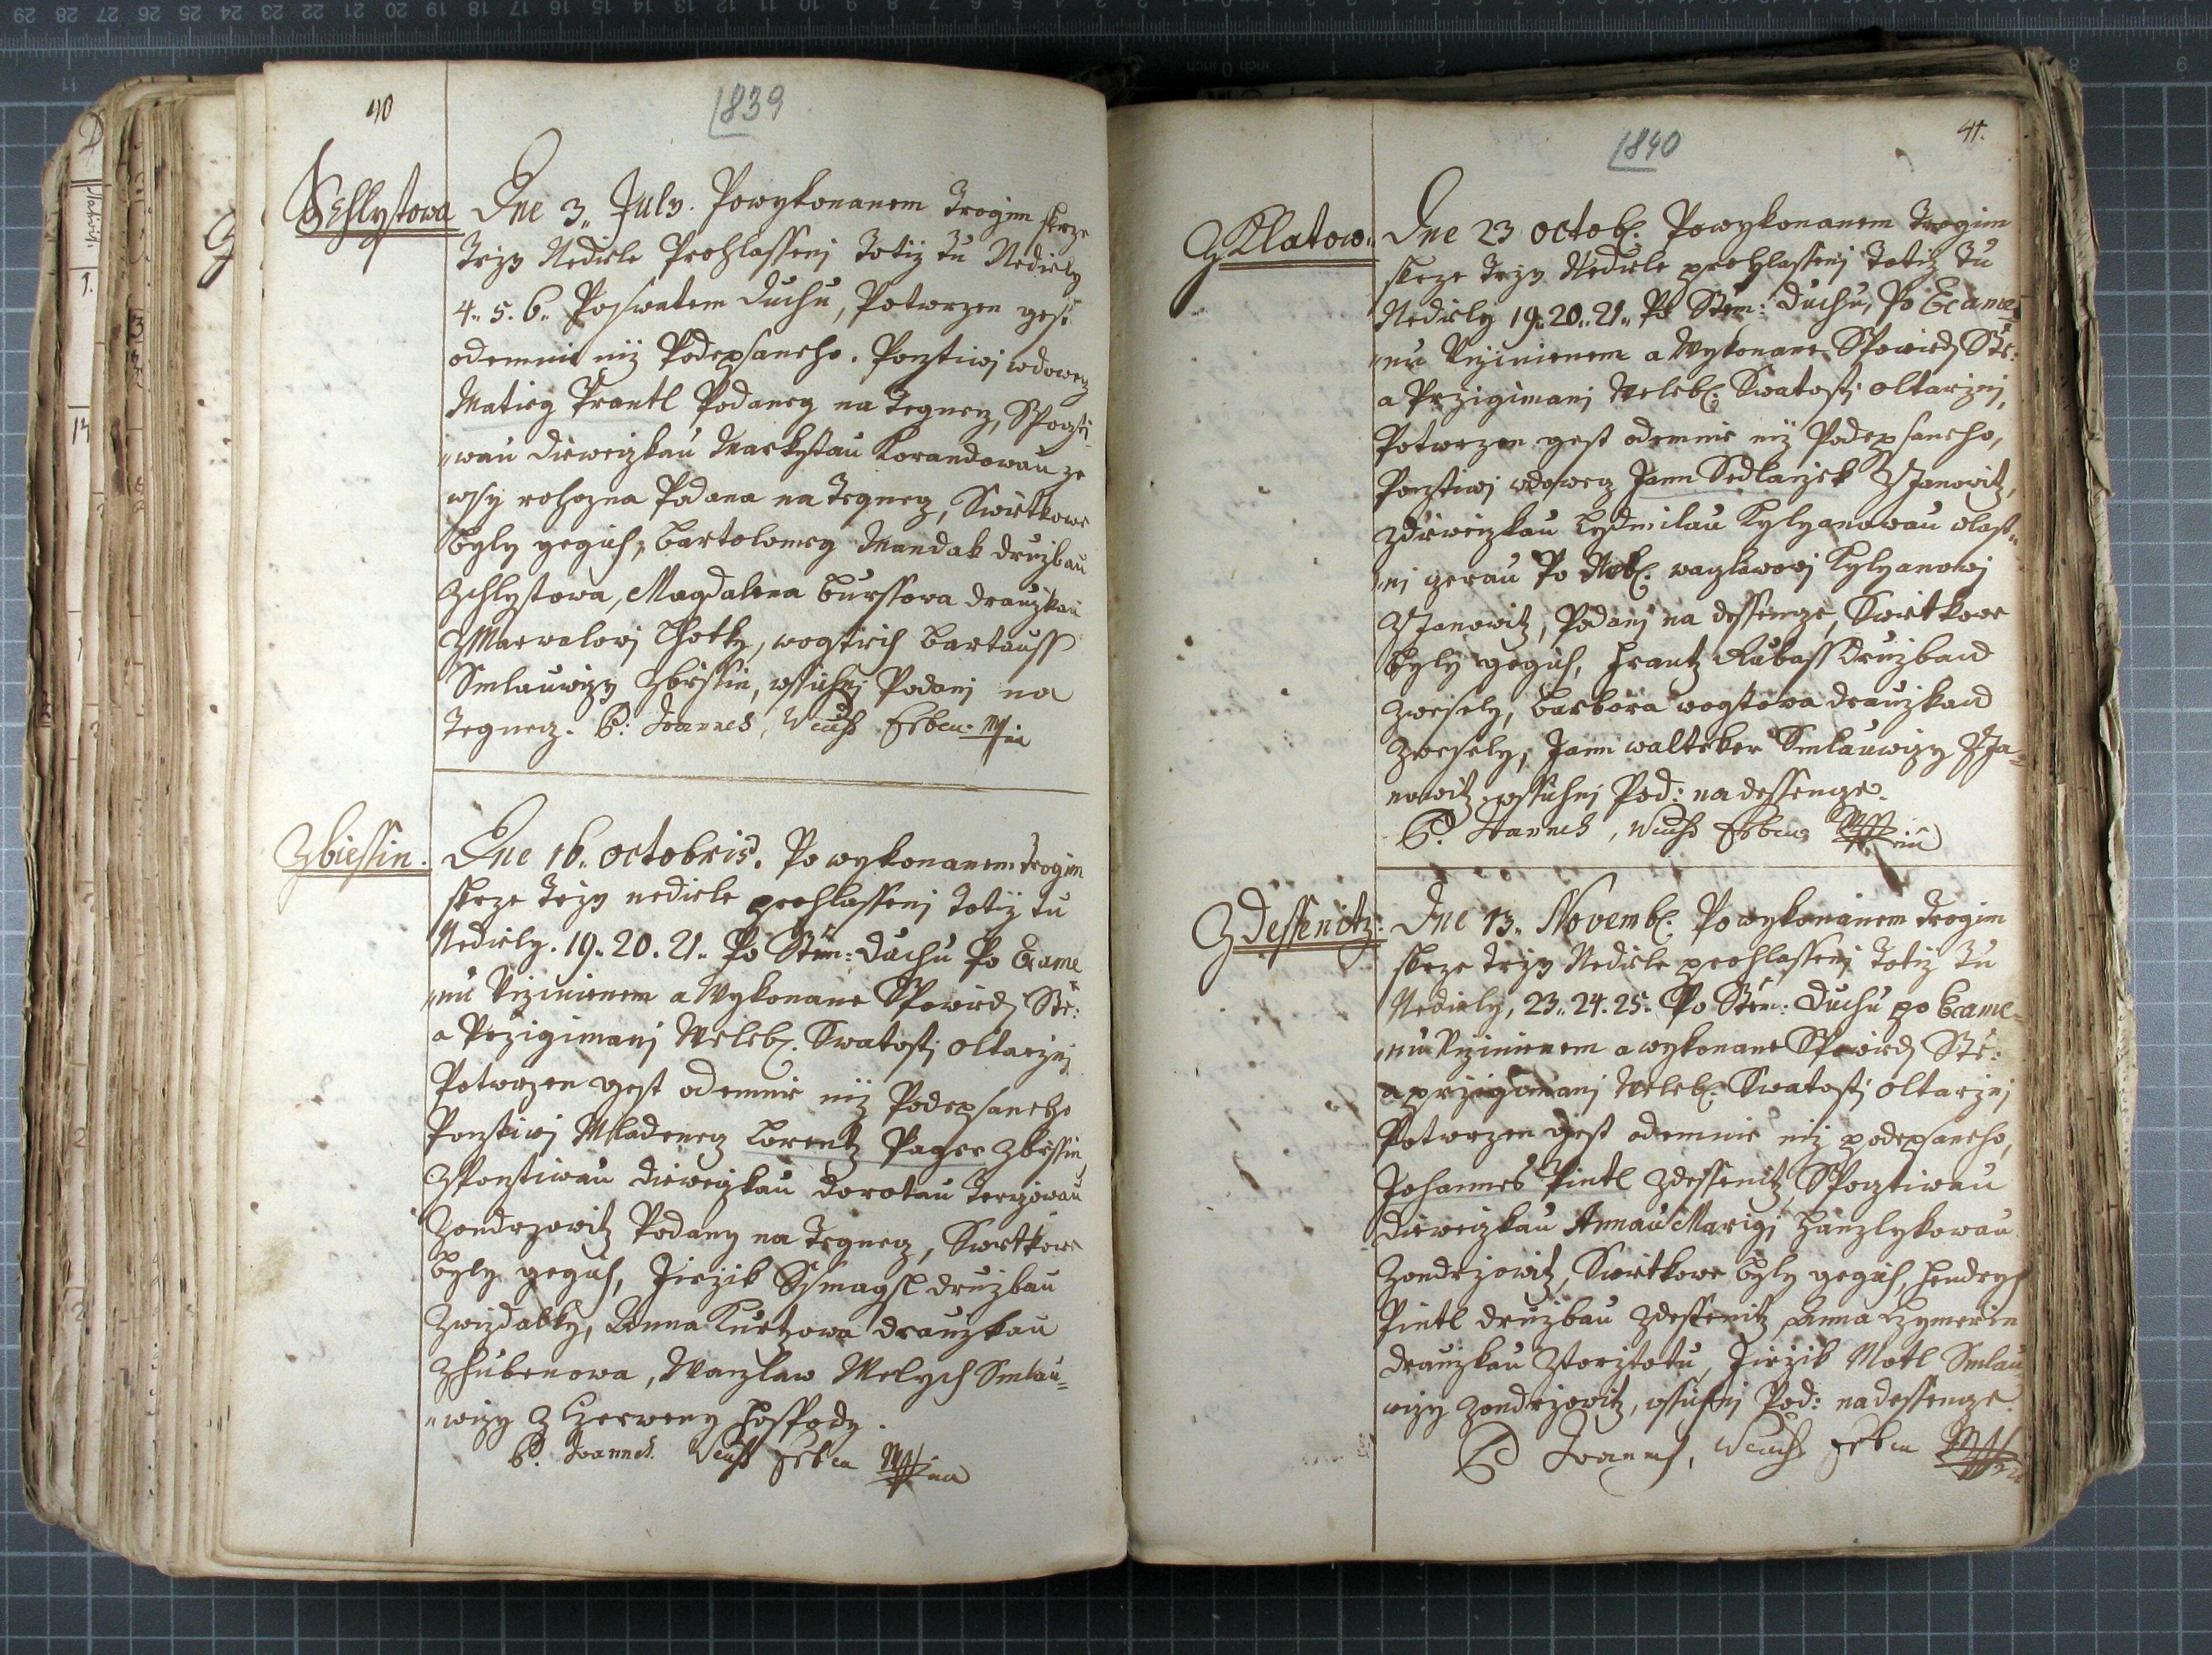 40
1839
Z Chlystowa
Dne 3. July. Powykonanem Trogim skrze
Trzy Nediele Prohlassenj Totiz tu Nediely
4. 5. 6. Poswatem duchu, Potwrzen gest
odemnie niz Podepsaneho. Pocztiwj wdowecz
Matieg Prantl Podaneg na Tegnecz, SPoczti
wau diewczkau Markytau Korandowau ze
wsy rohozna Podana na Tegnecz, Swietkowe
byly gegich, bartolomeg Mandak druzbau
Zchlystowa, Magdalena burssowa drauzkau
ZMarwalowj Lhotky, wogtiech bartauss
Smlauwczy Zbiessin, wssichnj Podanj na
Tegnecz. P: Joannes,
Zbiessin.
Dne 16. octobris. Po wykonanem trogim
skrze trzy nediele prohlassenj totiz tu
Nediely. 19. 20. 21. Po Stem: duchu Po Exame
nu Ucziniienem a Wykonane Spowied Ste:
a Przigimanj Weleb. Swatostj oltarznj
Potwrzen gest odemnie niz Podepsaneho
Pocztiwj Mladenecz Lorentz Pager Zbiessin
SPocztiwau diewczkau dorotau Terczowau
Zondrzowitz Podany na Tegnecz, Swietkowe
byly gegich, Jirzik Ssmagsl druzbau
Zwizdalky, Anna Kurtzowa drauzkau
Zhubenowa, Waczlaw Welych Smlau=
wczy Z Czerweny hospody.
P. Joannes.
1840
41.
Z Klatow.
Dne 23 octob. Powykonanem Trogim
skrze Trzy Nediele prohlassenj Totiz tu
Nediely 19. 20. 21. Po Stem: duchu, Po Exame
nu Ucziniienem a Wykonane Spowied Ste:
a Przigimanj Weleb. Swatostj oltarznj,
Potwrzen gest odemnie niz Podepsaneho,
Pocztiwj wdowecz Jann Sedlaczek ZJanowitz,
Zdiewczkau Lydmilau Kylyanowau wlast
nj Czerau Po Neb. waczlawowj Kylyanowj
ZJanowitz, Podanj na dessenize, Swietkowe
byly gegich, frantz Rubass druzbau
Zwesely, barbora wogtowa drauzkau
Zwesely, Jann walteker Smlauwczy ZJa=
nowitz wssichnj Pod: na dessenize.
P. Joannes,
Z Dessenitz:
Dne 13. Novemb. Powykonanem trogim
skrze trzy Nediele prohlassenj totiz tu
Nediely, 23. 24. 25. Po Stem: duchu po Exame=
nu Ucziniienem a wykonane Spowied Ste:
a przigimanj Weleb. Swatostj oltarznj
Potwrzen gest odemnie niz podepsaneho,
Johannes Pintl Zdessenitz SPocztiwau
diewczkau Annau Marigi hanzlykowau
Zondrzowitz, Swietkowe byly gegich, hendrych
Pintl druzbau Zdessenitz Anna
drauzkau Jirzik Motl Smlau
wczy Zondrzowitz, wssichnj Pod: na dessenize
P Joannes,